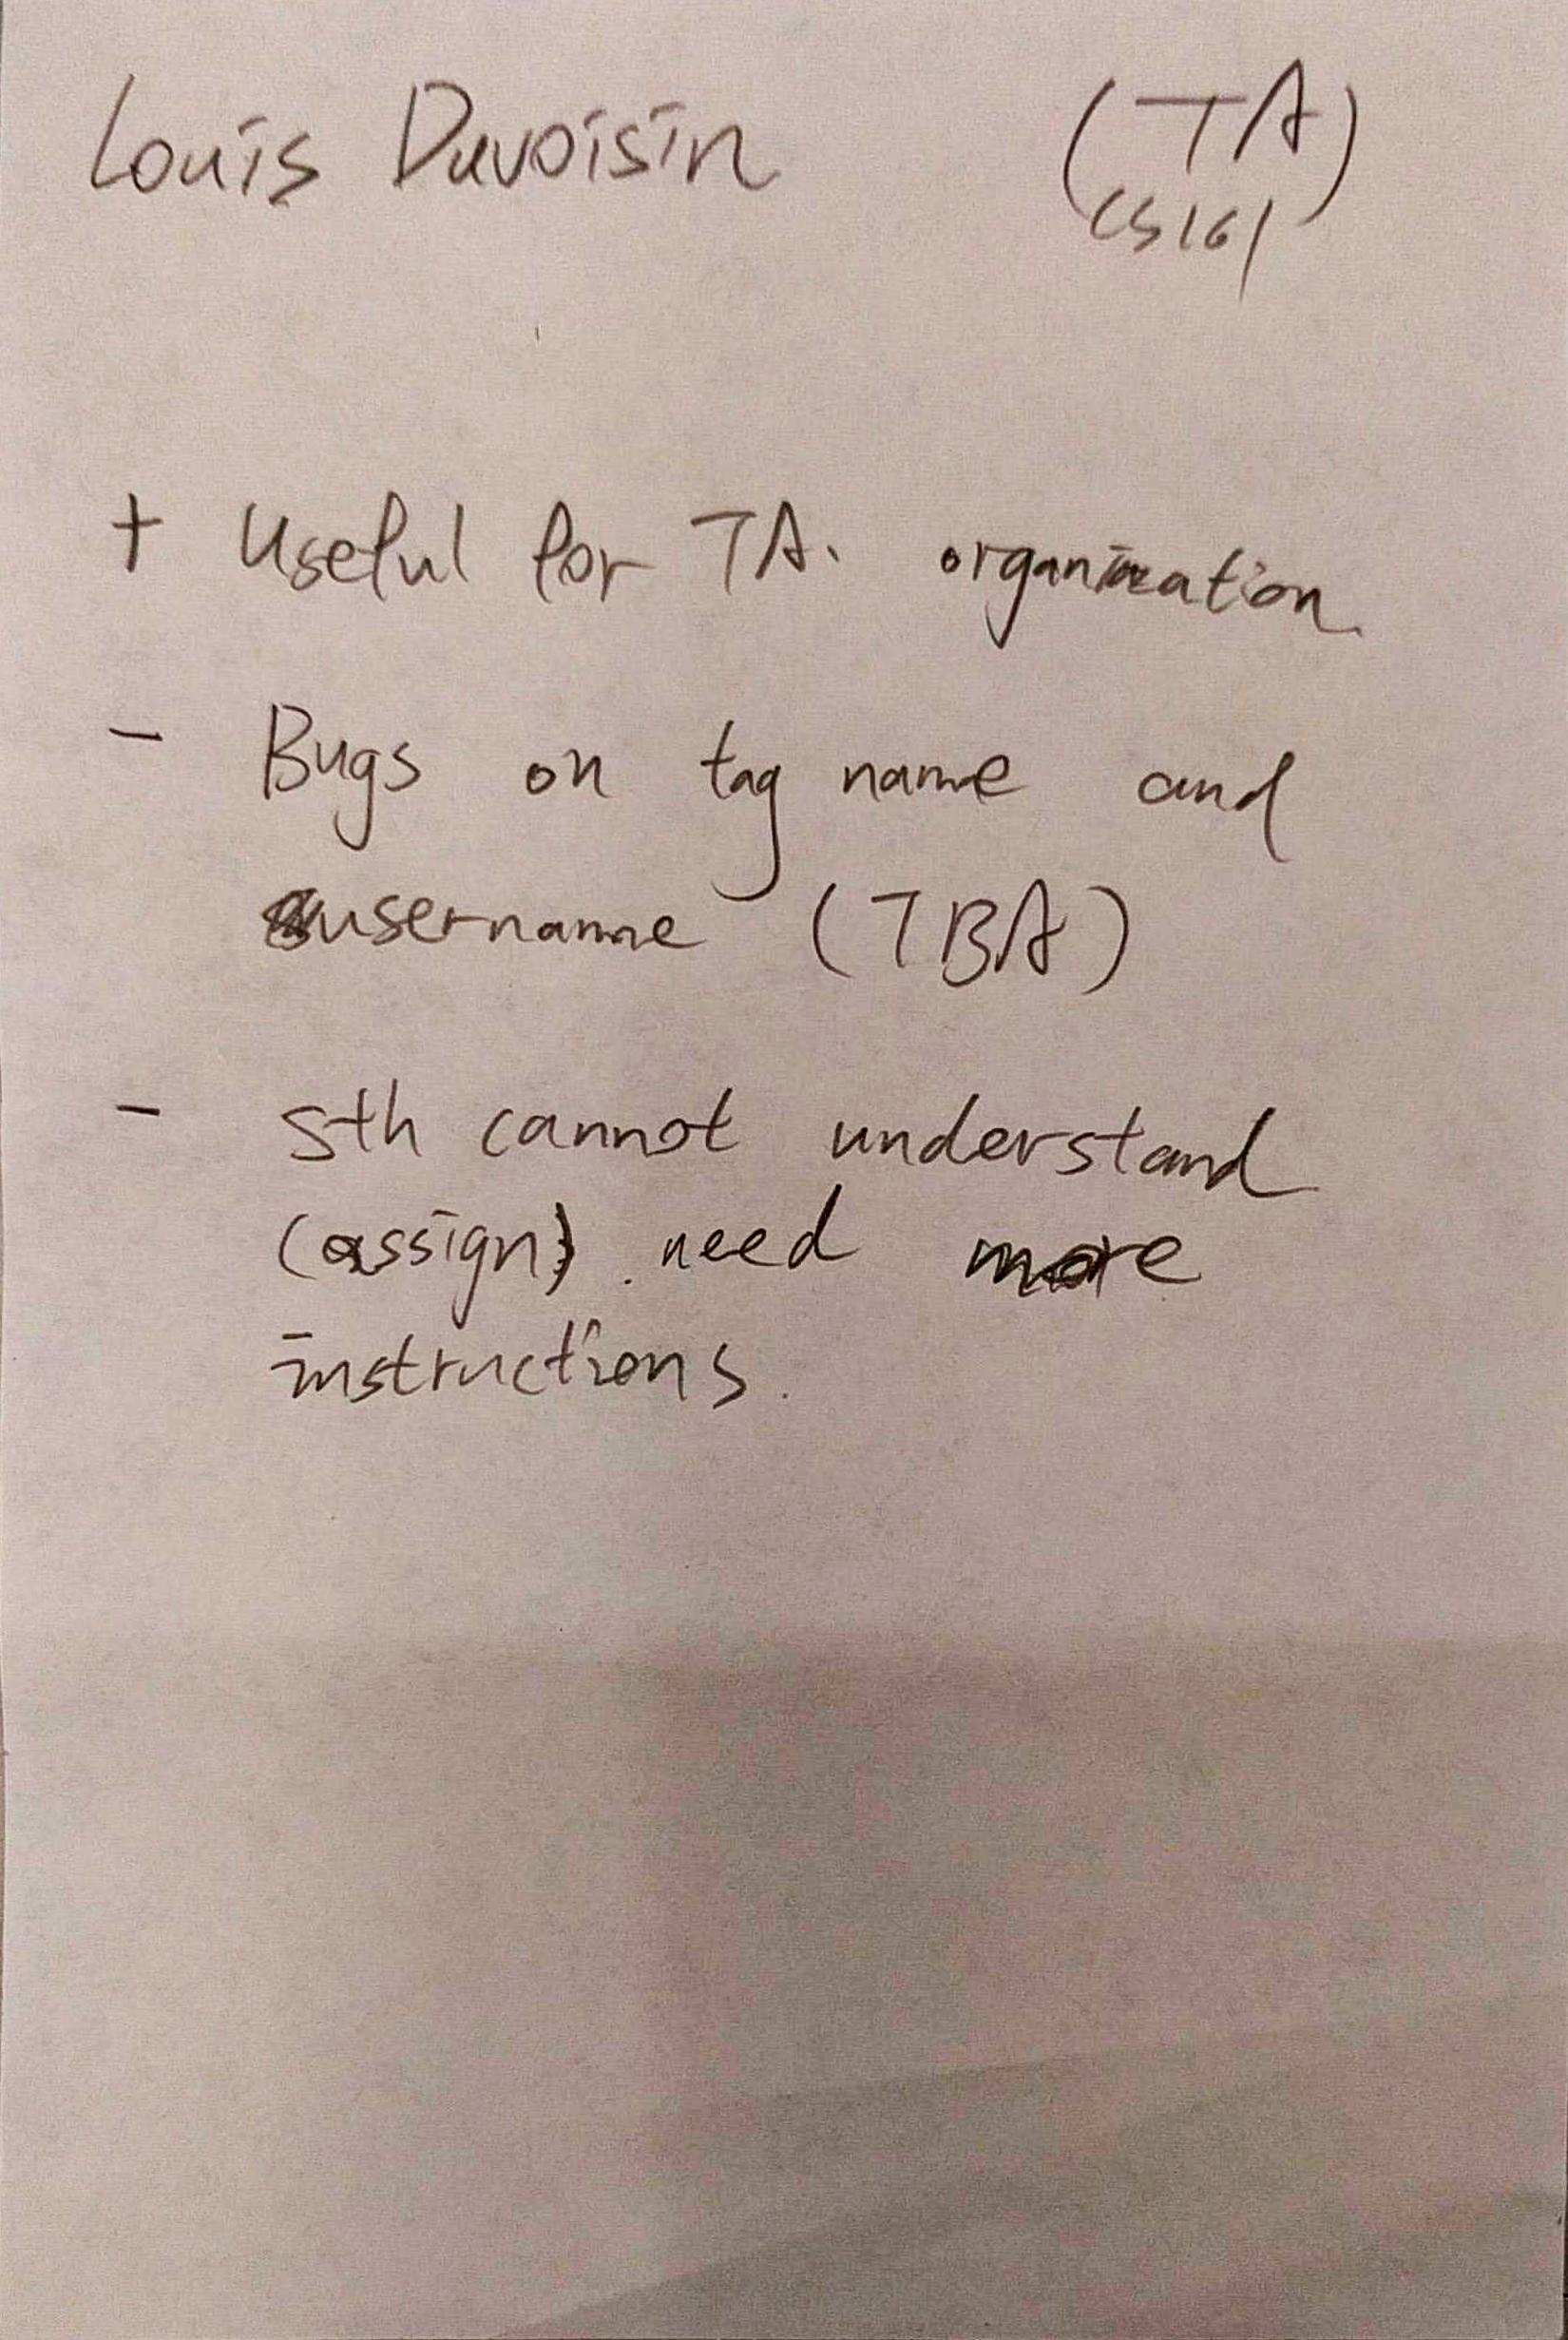 Louis Duvoisin (TA)
CS161
+ Useful for TA. organization
- Bugs on tag name and
username (TBA)
- sth cannot understand
(assign). need more
instructions.